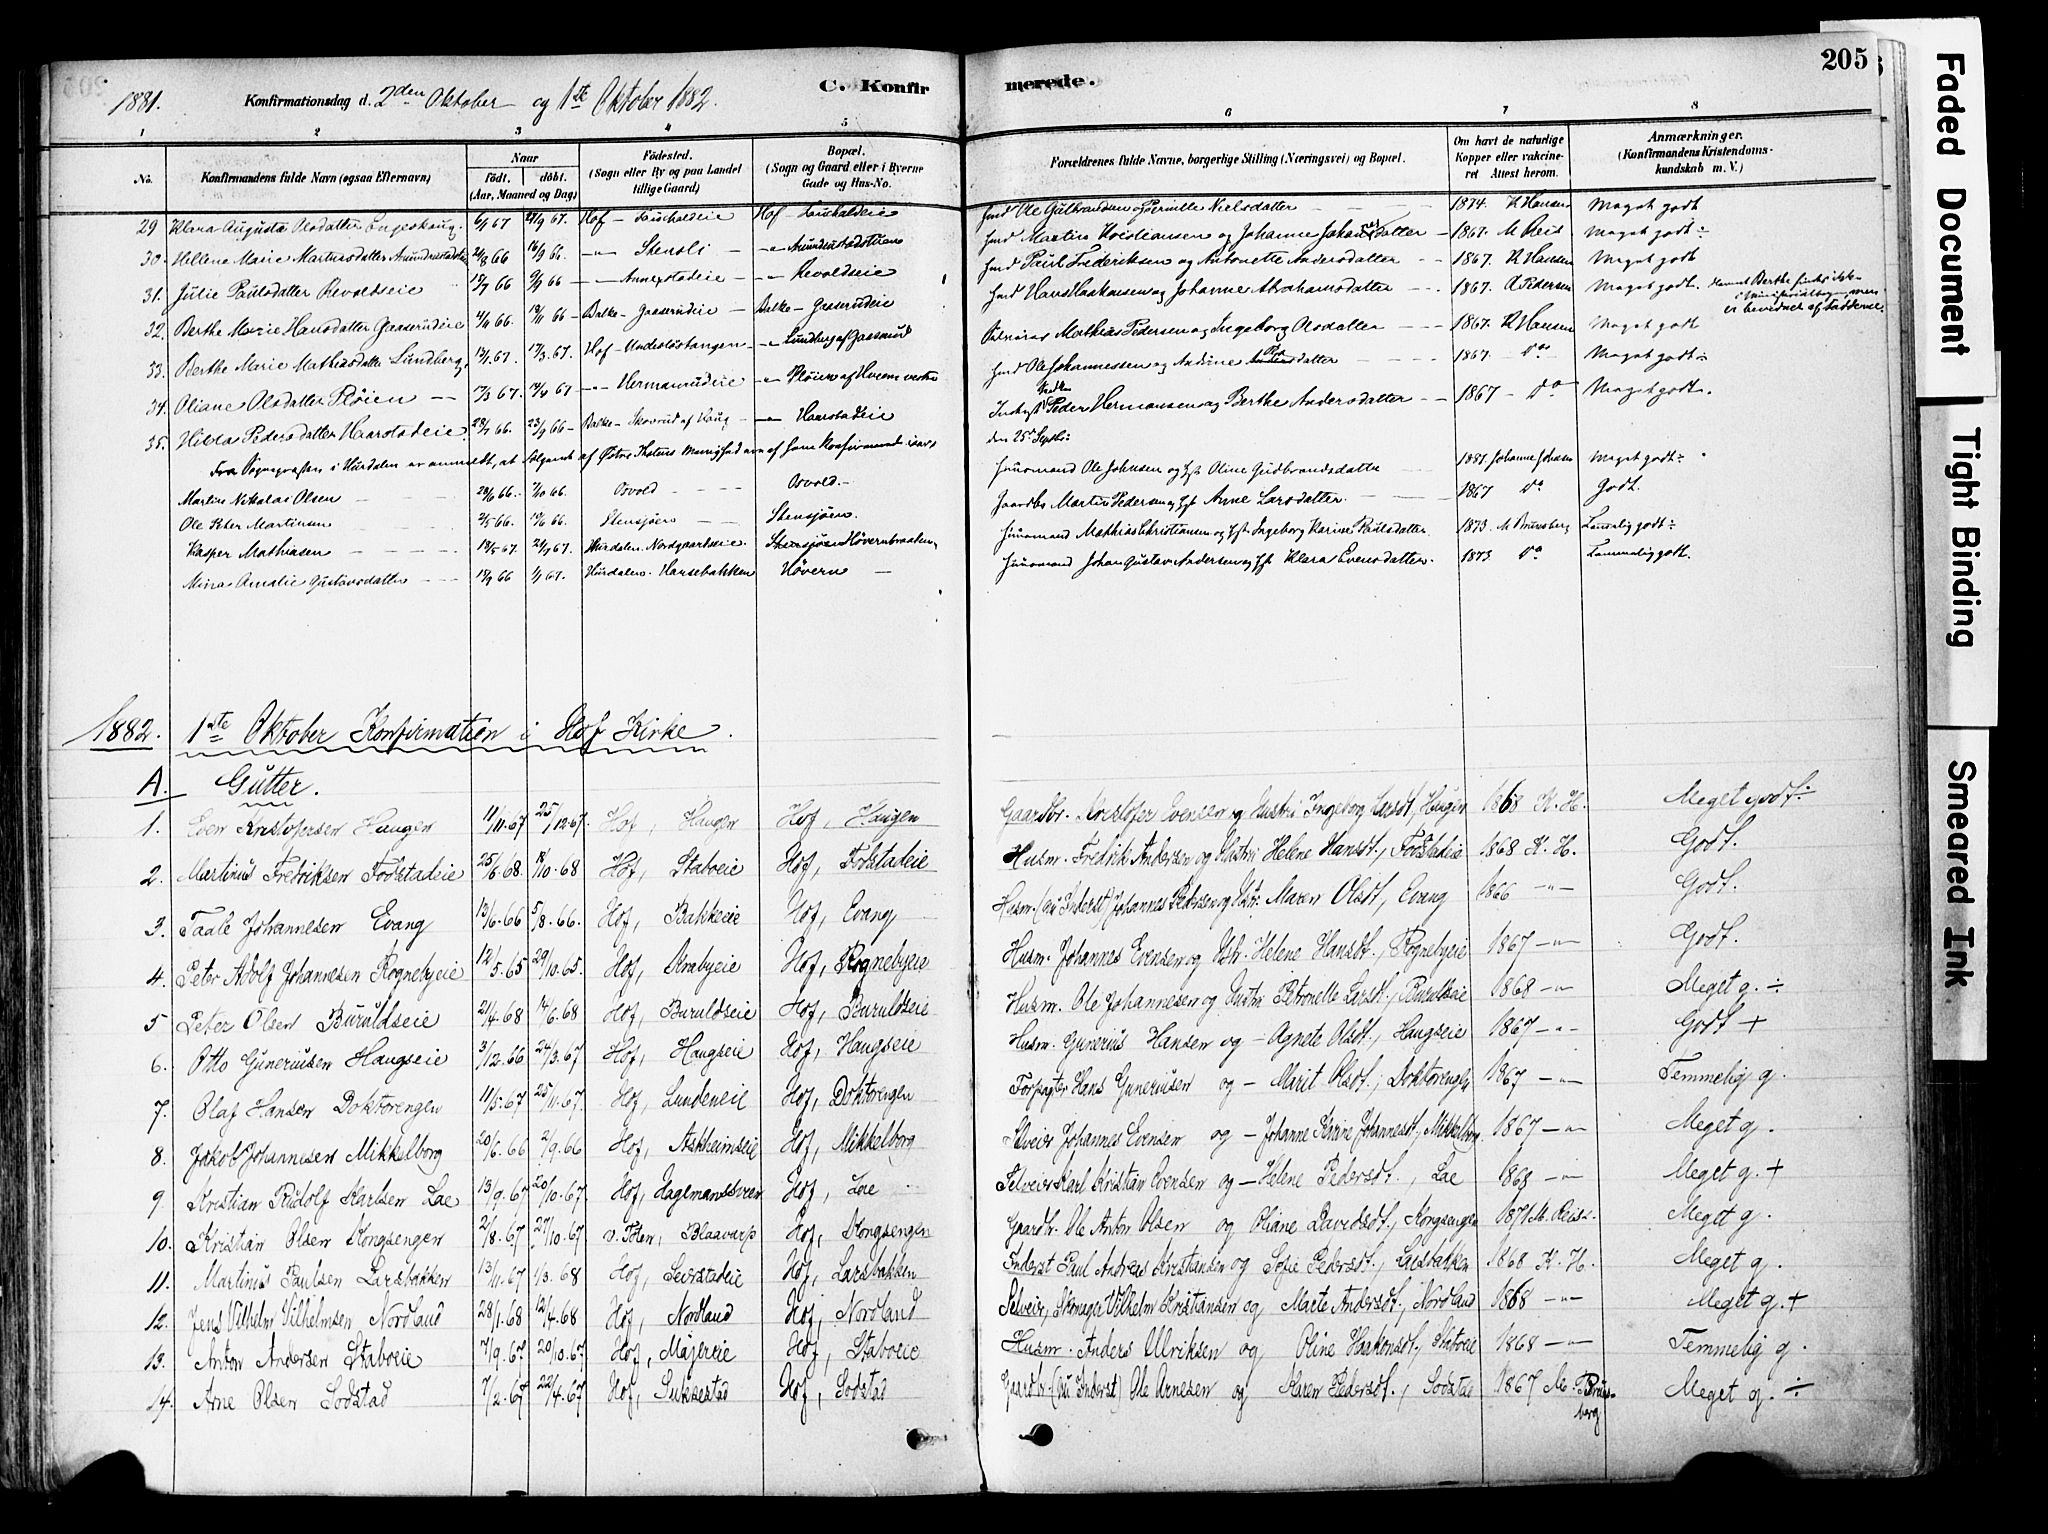 205
1881. Konfirmationsdag d. 2den Oktober og 1ste Oktober 1882. C. Konfirmerede.
1 2 3 4 5 6 7 8
No. Konfirmandens fulde Navn (ogsaa Efternavn) Naar født. døbt. (Aar, Maaned og Dag) Fødested. (Sogn eller By og paa Landet tillige Gaard) Bopæl. (Sogn og Gaard eller i Byerne Gade og Hus-No. Forældrenes fulde Navne, borgerlige Stilling (Næringsvei) og Bopæl. Om havt de naturlige Kopper eller vakcineret Attest herom. Anmærkninger. (Konfirmandens Kristendomskundskab m. V.)
29 Klara Augusta Olsdatter 6/1 67 Hof Hof Ole Gulbrandsen og Pernille Nielsdatter 1874. K Hansen Meget godt
30. Hellene Marie Martinsdatter 21/8 66 16/9 66. Stensli Martin Kristiansen og Johanne Johansdatter 1867. M Reis Meget godt ÷
31. Julie Paulsdatter Revoldseie 15/7 66 9/9 66 Revoldseie Paul Frederiksen og Antonette Andersdatter 1867. K Hansen Meget godt
32. Berthe Marie Hansdatter Gaaserudeie 4/11 66. 18/11 66 Balke Gaaserudeie Balke Gaaserudeie Johanne Abrahamsdatter 1867. A Pedersen Meget godt. Navnet Berthe findes ikke i Ministerialbogen, men er bevidnet af Fadderne.
33. Berthe Marie Mathiasdatter Lundberg. 12/1 67. 17/3 67. Hof Lundberg af Gaaserud Mathias Pedersen og Ingeborg Olsdatter 1867. K Hansen Meget godt
34. Oliane Olsdatter Pløien 17/3 67. 14/4 67 Hermanrudeie Ole Johannessen og Andrine 1867. do Meget godt ÷
35. Hilda Pedersdatter Haarstadeie. 28/7 66. 23/9 66 Balke Skovrud af Haug Haarstadeie Inderst Peder Hermansen og Berthe Andersdatter 1867 do Meget godt.
Fra Sognepræsten i Hurdalen er anmeldt, at følgende af Østre Thotens Menighed ere af ham konfirmerede den 25 Septbr:
Martin Nikolai Olsen 28/9 66. 7/10 66. Osvold Osvold. Husmand Ole Johnsen og Hst Oline Gudbrandsdatter 1881. Johanne Johnsen Meget godt ÷
Ole Peter Martinsen 2/5 66. 10/6 66. Stensjøen Stensjøen. Gaardbr Martin Pedersen og Hst Anne Larsdatter. 1867 do Godt.
Kasper Mathiasen 13/5 67. 21/7 67. Hurdalen. Nordgaardseie. Høvernbraaten Husmand Mathias Christiansen og Hst Ingeborg Karine Paulsdatter. 1873. M Bruusberg Temmelig godt ÷
Mina Amalie Gustavsdatter 15/9 66 1/1 67. Hurdalen. Harsebakken Høvern Husmand Johan Gustav Andersen og Hst Klara Evensdatter. 1873 do Temmelig godt.
1882. 1ste Oktober Konfirmation i Hof Kirke.
A. Gutter.
1. Even Kristofersen Haugen 11/11.67 25/12.67. Hof, Haugen Hof, Haugen Gaardbr. Kristofer Evensen og Hustru Ingeborg Larsdt, Haugen 1868 K. H. Meget godt ÷
2. Martinus Fredriksen Fodstadeie 25/6.68. 18/10.68 Hof, Staboeie Hof, Fodstadeie Husm. Fredrik Andersen og Hustru Helene Hansdt., Fodstadeie 1868 K. H. Godt.
3. Taale Johannesen Evang 13/6.66 5/8.66. Hof, Bakkeeie Hof, Evang Husm. (nu Inderst) Johannes Pedersen og Hstr. Maren Olsdt, Evang 1866 -"- Godt.
4. Peter Adolf Johannesen Rognebyeie 12/5.65 29/10.65. Hof, Krabyeie Hof, Rognebyeie Husm. Johannes Evensen og Hstr. Helene Hansdt., Rognebyeie 1867 -"- Godt.
5 Peter Olsen Buruldseie 21/4.68 14/6.68 Hof, Buruldseie Hof, Buruldseie Husm. Ole Johannesen og Hustru Petronelle Larsdt., Buruldseie 1868 -"- Meget g. ÷
6. Otto Guneriusen Haugseie 3/12.66 24/3.67. Hof, Haugseie Hof, Haugseie Husm. Gunerius Hansen og - Agnete Olsdt., Haugseie 1867 -"- Godt +
7. Olaf Hansen Doktorengen 11/5.67 25/11.67. Hof, Lundeneie Hof, Doktorengen Forpagter Hans Guneriusen og - Marit Olsdt., Doktorengen 1867 -"- Temmelig g.
8. Jakob Johannesen Mikkelborg 20/6.66 2/9.66 Hof, Askheimseie Hof, Mikkelborg Selveier Johannes Evensen og - Johanne Karine Johannesdt., Mikkelborg 1867 -"- Meget g.
9. Kristian Rudolf Karlsen Lae 13/9.67 20/10.67. Hof, Hagemandsveen Hof, Lae Selveier Karl Kristian Evensen og - Helene Pedersdt., Lae 1868 -"- Meget g. +
10. Kristian Olsen Kongsengen 2/8.67 27/10.67 v. Toten, Blaavarp Hof, Kongsengen Gaardbr. Ole Anton Olsen og Oliane Davidsdt., Kongsengen 1871 M. Reis. Meget g.
11. Martinus Paulsen Larsbakken 13/11.67 1/3.68 Hof, Seierstadeie Hof, Larsbakken Inderst Paul Andreas Kristiansen og Sofie Pedersdt., Larsbakken 1868 K. H. Meget g.
12. Jens Vilhelm Vilhelmsen Nordland 28/1.68 12/4.68 Hof, Nordland Hof, Nordland Selveier, Skomager Vilhelm Kristiansen og Marte Andersdt., Nordland 1868 -"- Meget g. +
13. Anton Andersen Staboeie 7/9.67 20/10.67 Hof, Majereie Hof, Staboeie Husm. Anders Ulriksen og Oline Haakonsdt., Staboeie 1868 -"- Temmelig g.
14. Arne Olsen Sodstad 7/2.67 22/4.67 Hof, Sukkestad Hof, Sodstad Gaardbr. (nu Inderst) Ole Arnesen og Karen Pedersdt., Sodstad 1867 M. Bruusberg Meget g. ÷
Faded Document
Tight Binding
Smeared Ink